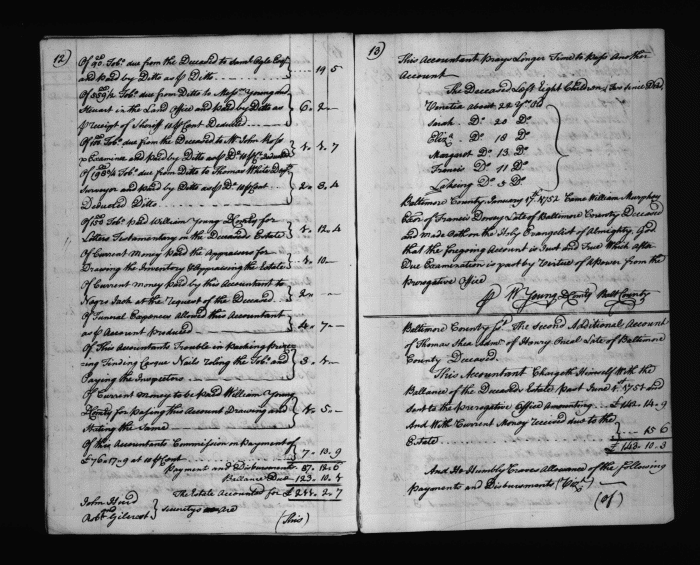 12
Of 90. Tob.o due from the Deceased to Sarah Ogle Exr.
and paid by Ditto as p Ditto ... 19. 5
Of 559½ Tob.o due from Ditto to Mess.rs Young and
Stewart in the Land Office and paid by Ditto as 6. 2. -
p receipt of Sheriff 12 p Cent Deducted
due from the Deceased to M.r John Ross
Examiner and paid by Ditto as p D.o 4. 7
Of 198¼ Tob.o due from Ditto to Thomas White Dep.
Surveyor and paid by Ditto as p D.o p Cent 3. 4
Deducted Ditto
Of 150 Tob.o paid William Young for
Letters Testamentary on the deceaseds Estate 12. 4
Of Current Money paid the Appraisers for
Drawing the Inventory & Appraising the Estate 10 -
Of Current Money paid by this Accountant to
Negro Jack at the request of the Deceased
Of Funeral Expences allowed this Accountant
as p Account produced 7 -
Of This Accountants Trouble in
Finding Nails the Tob.o and
Paying the Inspectors
Of Current Money to be paid William Young
for passing this Account Drawing and 5. -
Stating the Same
Of this Accountants Commission on payment of 7. 13. 9
£76. 17. 9 at 10 p Cent
Payment and Disbursements 87. 12. 6
Ballance Due 123. 10.
The Estate Accounted for £ 2. 7
John Hurd
Rob.t Gilcrest } securetys are
(This)
13
This Accountant Prays Longer Time to Pass Another
Account
The Deceased Left Eight Children, Two Since Ded.
about 22 y.rs old
Sarah D.o 20 D.o
Eliz.a D.o 18 D.o
Margaret D.o 13 D.o
Francis D.o 11 D.o
D.o D.o
Baltimore County January 17.th 1752 Came William Murphey
Exor. of Francis Dorsey Late of Baltimore County Deceased
and Made Oath on the Holy Evangelist of Almighty God
that the foregoing Account is Just and True Which after
Due Examination is past by Virtue of a Power from the
Prerogative Office
p W Young Balt County
Baltimore County Ss. The Second Additional Account
of Thomas Shea Adm.r of Henry Late of Baltimore
County Deceased.
This Accountant Chargeth Himself With the
Ballance of the Deceaseds Estate Past June 1751 and
Sent to the Prerogative Office Amounting ... £142. 14. 9
And With Current Money received due to the
Estate 15 6
£143. 10. 3
And He Humbly Craves Allowance of the following
Payments and Disbursments (Viz.t)
(Of)